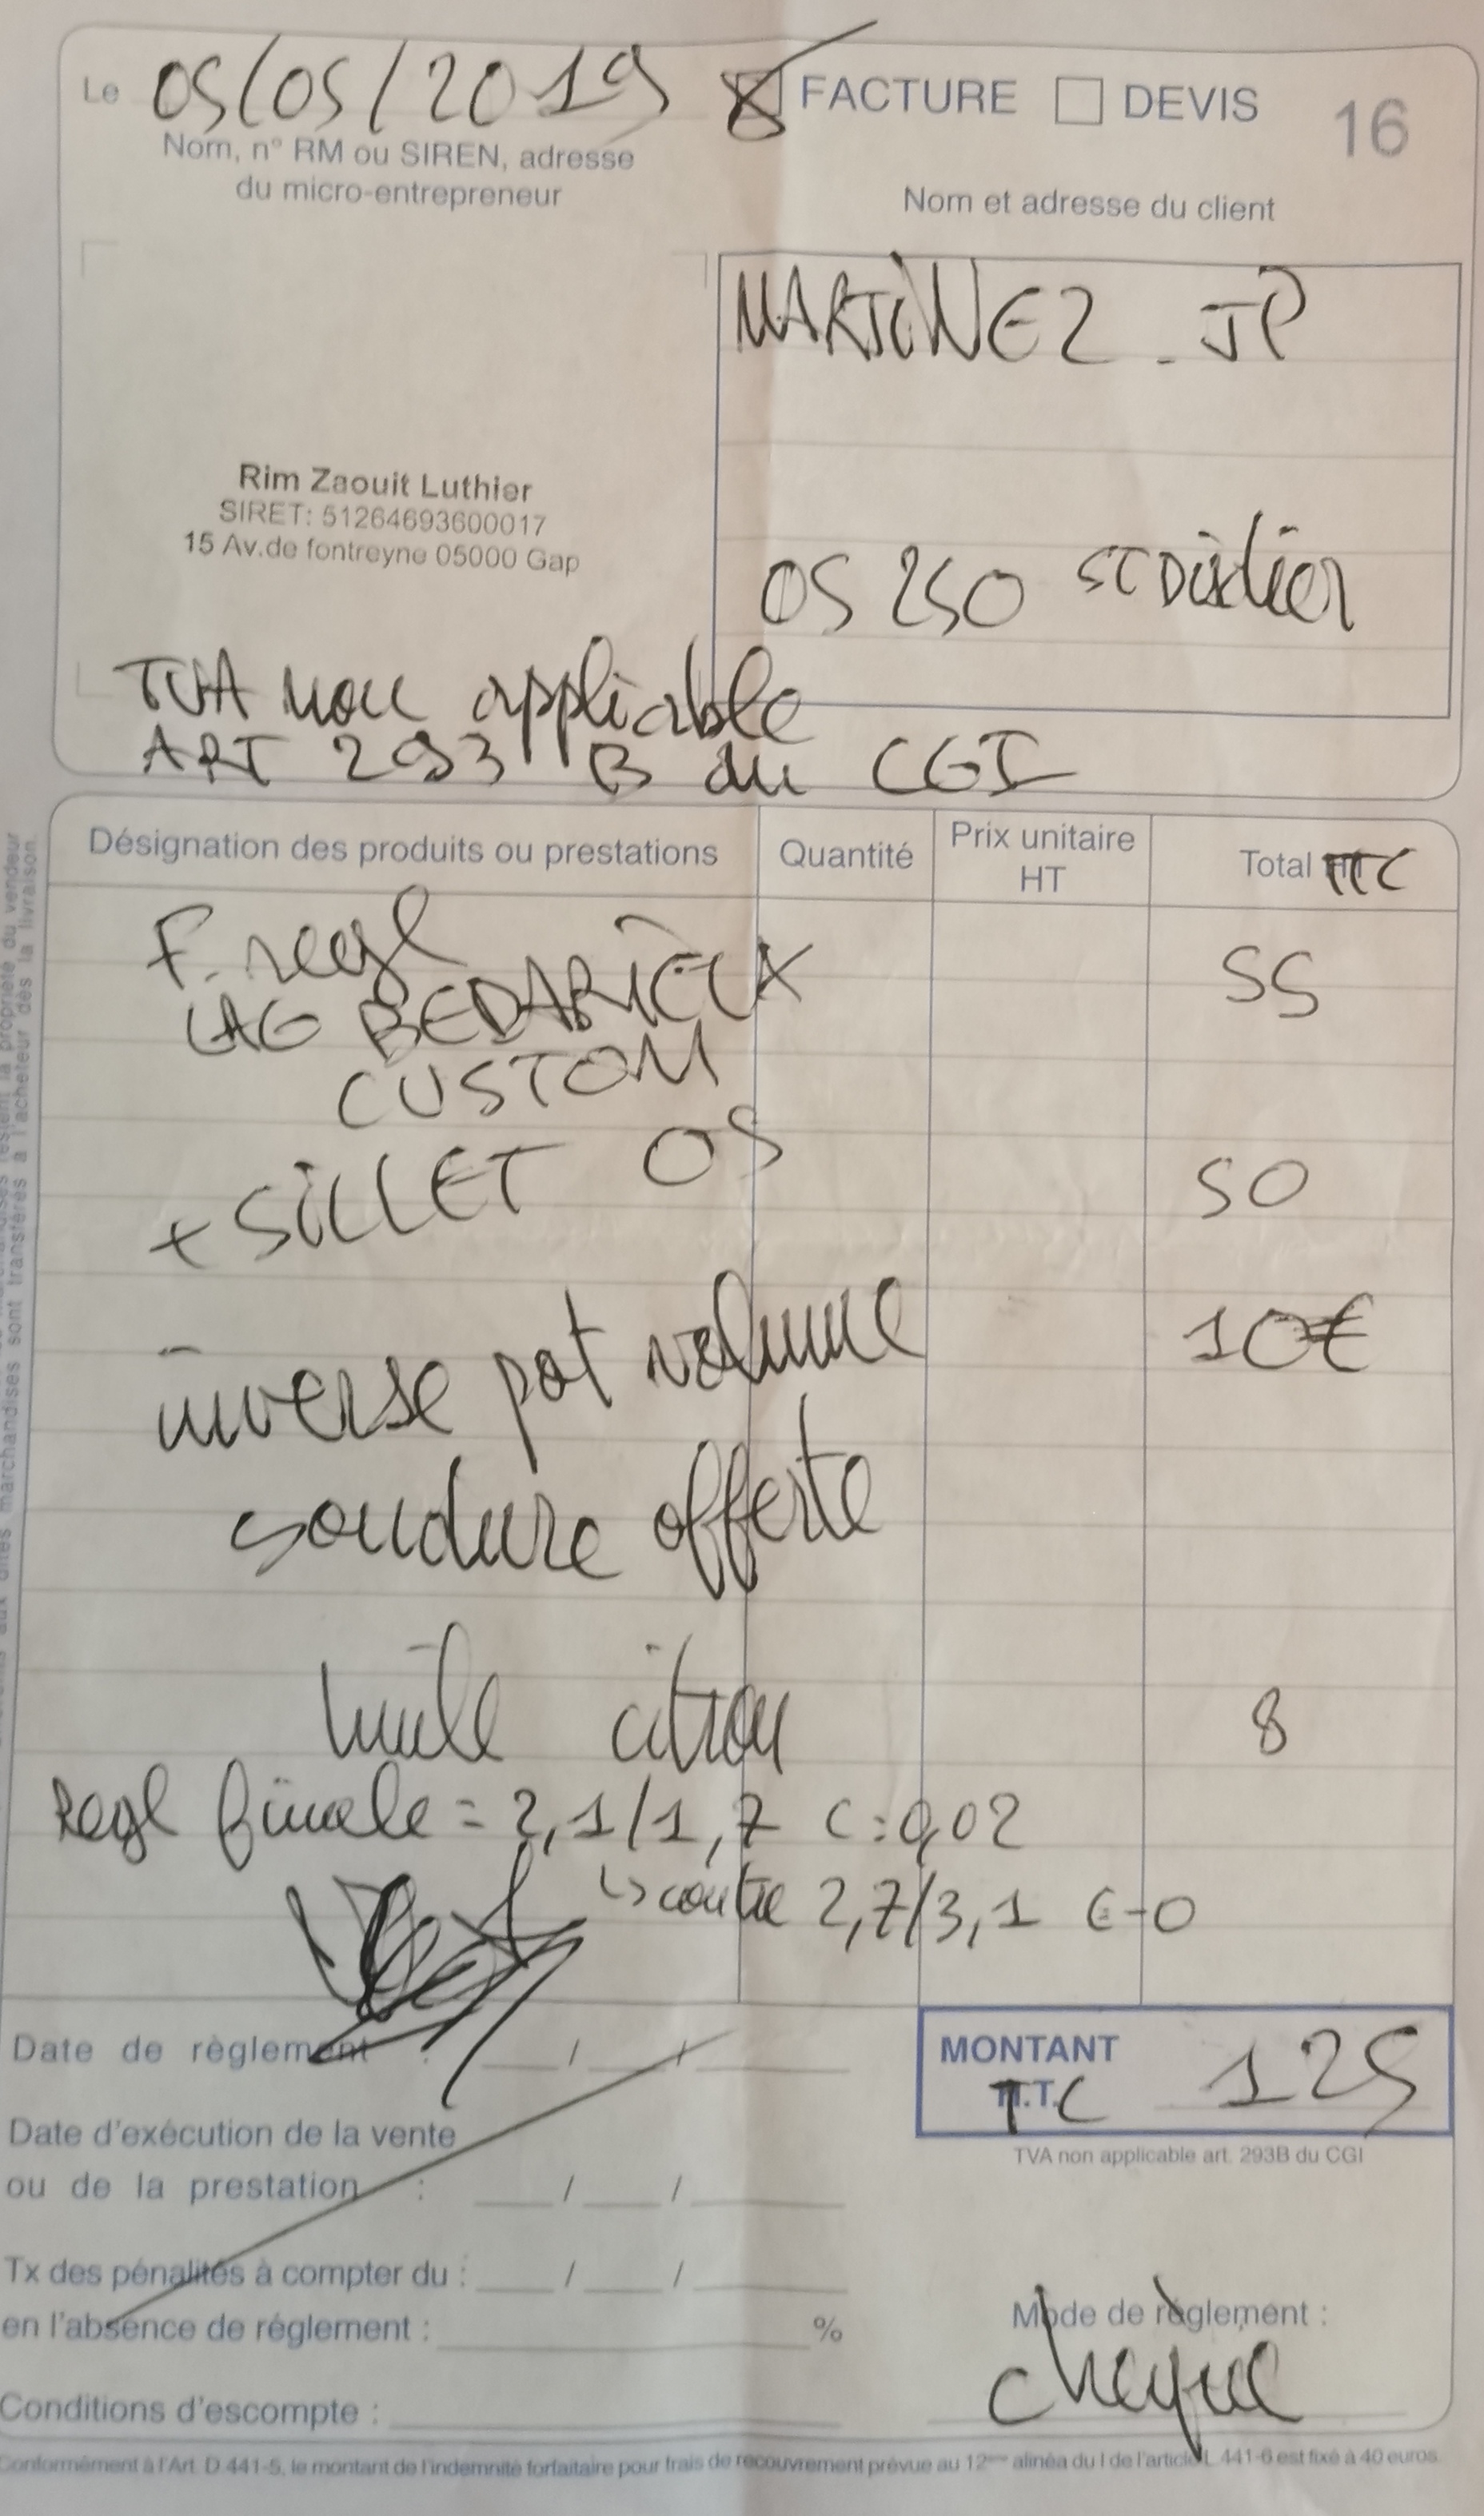 Le 05/05/2019 FACTURE DEVIS 16
Nom, n° RM ou SIREN, adresse
du micro-entrepreneur
Nom et adresse du client
MARTINEZ - JP
Rim Zaouit Luthier
SIRET: 51264693600017
15 Av.de fontreyne 05000 Gap
05 250 ST Disdier
TVA non appliable
ART 293 B du CGI
Désignation des produits ou prestations Quantité Prix unitaire HT Total TTC
F. regl 55
LAG BEDARIEUX
CUSTOM
+ SILLET OS 50
inverse pot volume 10€
soudure offerte
huile citron 8
Regl finale = 2,1/1,7 C:0,02
↳ contre 2,7/3,1 C-0
Date de règlement : / /
MONTANT TTC 125
Date d'exécution de la vente
ou de la prestation : / /
TVA non applicable art. 293B du CGI
Tx des pénalités à compter du : / /
en l'absence de réglement : %
Mode de règlement :
cheque
Conditions d'escompte :
Conformément à l'Art. D 441-5, le montant de l'indemnité forfaitaire pour frais de recouvrement prévue au 12ème alinéa du I de l'article L 441-6 est fixé à 40 euros.
marchandises sont transférés à l'acheteur dès la livraison.